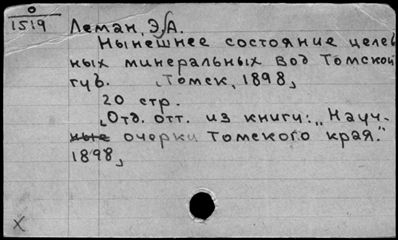 0
1519
Леман, Э.А.
Нынешнее состояние целеб
ных минеральных вод Томской
губ. Томск, 1898,
20 стр.
Отд. отт. из книги: „Науч-
ные очерки Томского края."
1898,
х